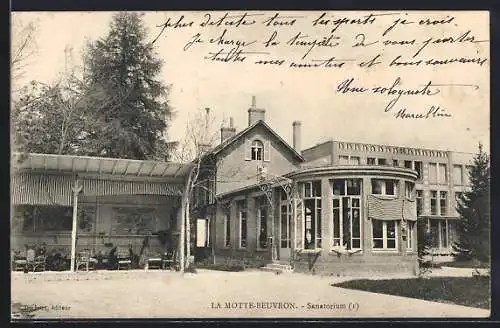 plus déteste tous les sports je crois.
Je charge la tempête de vous porter
toutes mes amitiés et bons souvenirs
Une solognote
Marcelline
LA MOTTE-BEUVRON. - Sanatorium (1)
éditeur